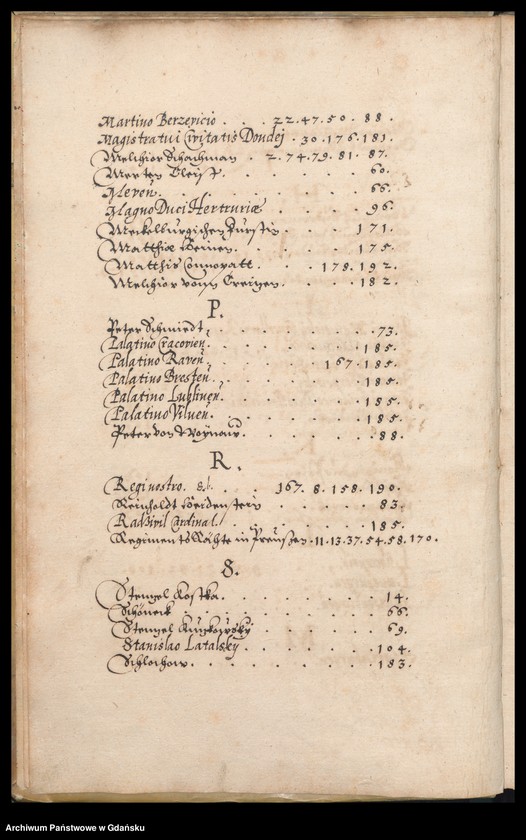 Martino Berzevicio . . . 22.47.50.88.
Magistratui Civitatis Dondej . 30.176.181.
Melchior Schachman . 2.74.79.81.87.
Merten Kleist . . . . . . 60.
Meven . . . . . . . 66.
Magno Duci Hertruriæ . . . . 96.
Meckelburgischen Furstin . . . 171.
Matthiæ . . . . . 175.
Matthis Connopatt . . . 178.192.
Melchior vonn . . . . 182.
P.
Peter Schmiedt . . . . . . . 73.
Palatino Cracovien . . . . . . 185.
Palatino Raven . . . . 167.185.
Palatino Bresten . . . . . . 185.
Palatino Lublinen . . . . . . 185.
Palatino Vilnen . . . . . . 185.
Peter von . . . . . . 88.
R.
Regi nostro . . . . 167.8.158.190.
Reinholdt . . . . . 83.
Radzivil Cardinal . . . . . . 185.
Regiments Räthe in Preussen .11.13.37.54.58.170.
S.
Stenzel Kostka . . . . . . . 14.
Schöneck . . . . . . . 66.
Stenzel . . . . . . 69.
Stanislao Latalsky . . . . . 104.
Schlochow . . . . . . . 183.
Archiwum Państwowe w Gdańsku